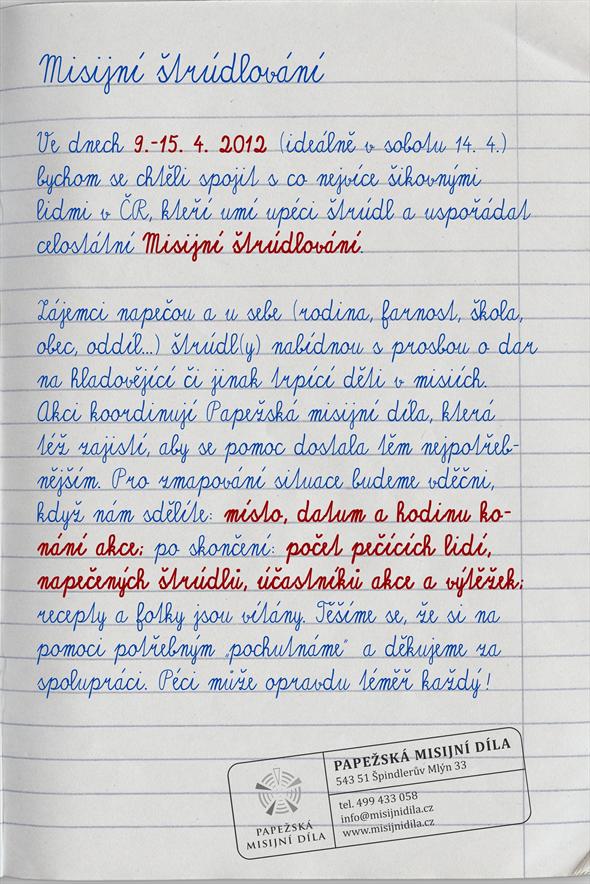 Misijní štrúdlování
Ve dnech 9.-15. 4. 2012 (ideálně v sobotu 14. 4.)
bychom se chtěli spojit s co nejvíce šikovnými
lidmi v ČR, kteří umí upéci štrúdl a uspořádat
celostátní Misijní štrúdlování.
Zájemci napečou a u sebe (rodina, farnost, škola,
obec, oddíl...) štrúdl(y) nabídnou s prosbou o dar
na hladovějící či jinak trpící děti v misiích.
Akci koordinují Papežská misijní díla, která
též zajistí, aby se pomoc dostala těm nejpotřeb-
nějším. Pro zmapování situace budeme vděčni,
když nám sdělíte: místo, datum a hodinu ko-
nání akce; po skončení: počet pečících lidí,
napečených štrúdlů, účastníků akce a výtěžek;
recepty a fotky jsou vítány. Těšíme se, že si na
pomoci potřebným „pochutnáme" a děkujeme za
spolupráci. Péci může opravdu téměř každý!
PAPEŽSKÁ
MISIJNÍ DÍLA
PAPEŽSKÁ MISIJNÍ DÍLA
543 51 Špindlerův Mlýn 33
tel. 499 433 058
info@misijnidila.cz
www.misijnidila.cz